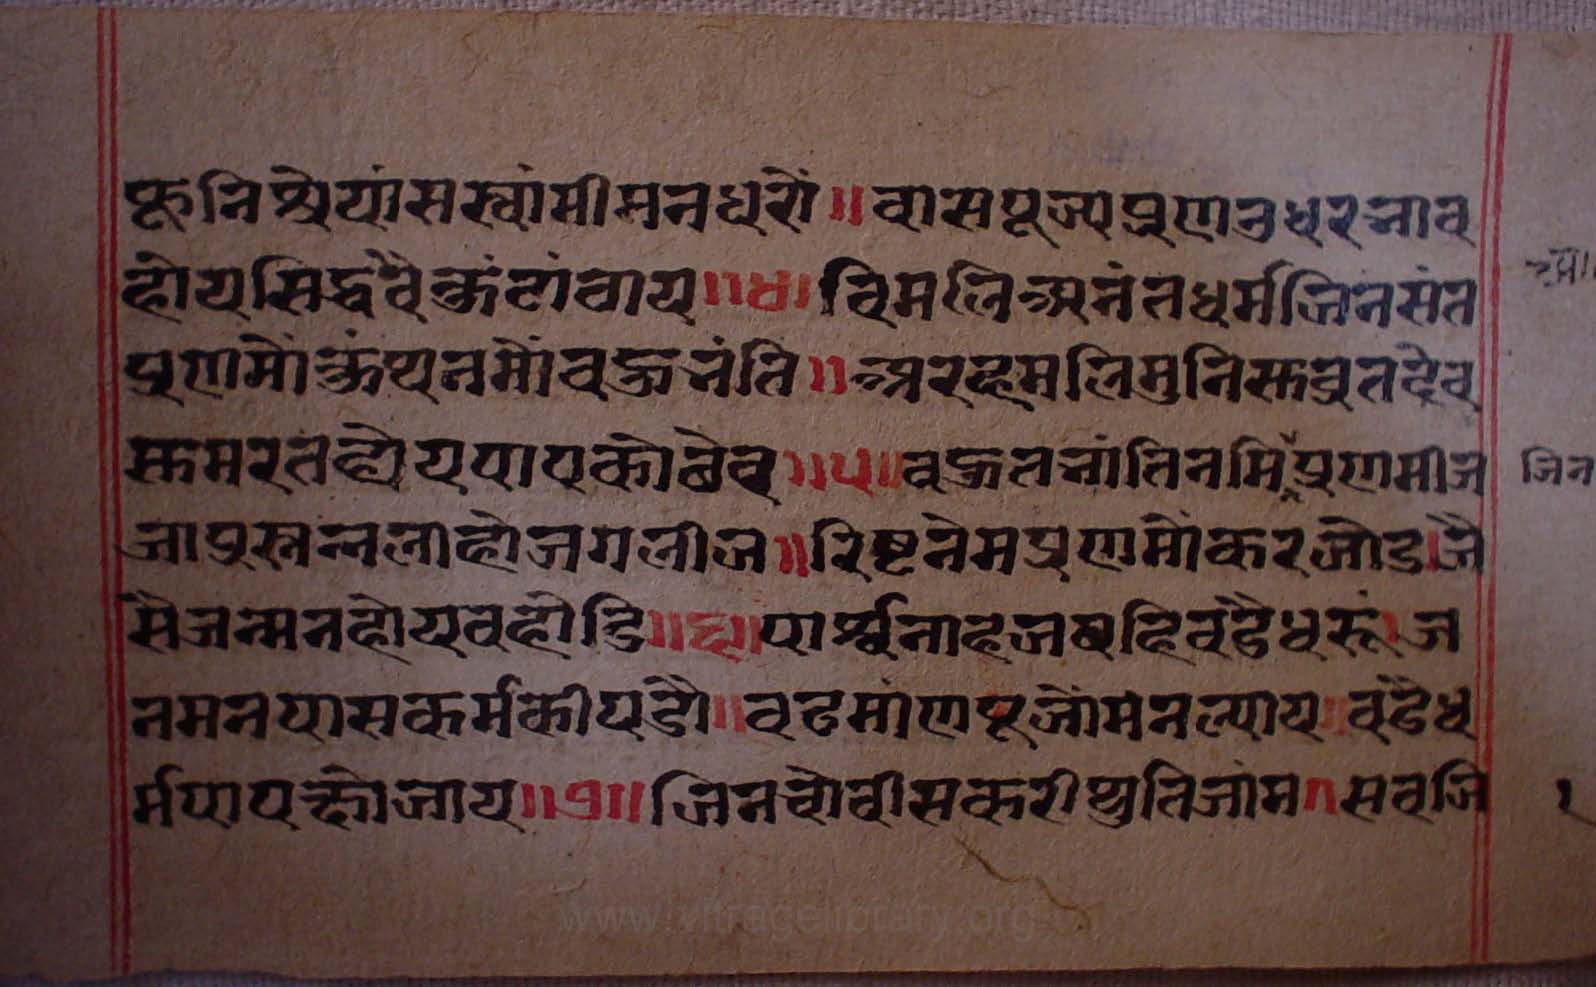 फुनिश्रेयांसस्वांमीमनधरों॥वासपूज्यप्रणउधरचाव
होयसिद्धवैकुंटांवाय॥४॥विमलिअनंतधर्मजिनसंत
प्रणमोंकुंथनमोंवहुनंति॥अरहमलिमुनिसुव्रतदेव
सुमरतहोयपापकोछेव॥५॥वहुतनांतिनमिप्रणमीज
जाप्रसनलाहोजगलीज॥रिष्टनेमप्रणमोंकरजोड।जै
सैजन्मनहोयवहोडि॥६॥पार्श्वनाहजषहिवंदैधरूं।ज
नमनपासकर्मकीपडौ॥वढमांणपूजोंमनल्याय॥वढैध
र्मपापकोजाय॥७॥जिनचोवीसकरीथुतिजांम।सवजि
जिन
१
www.vitragelibrary.org